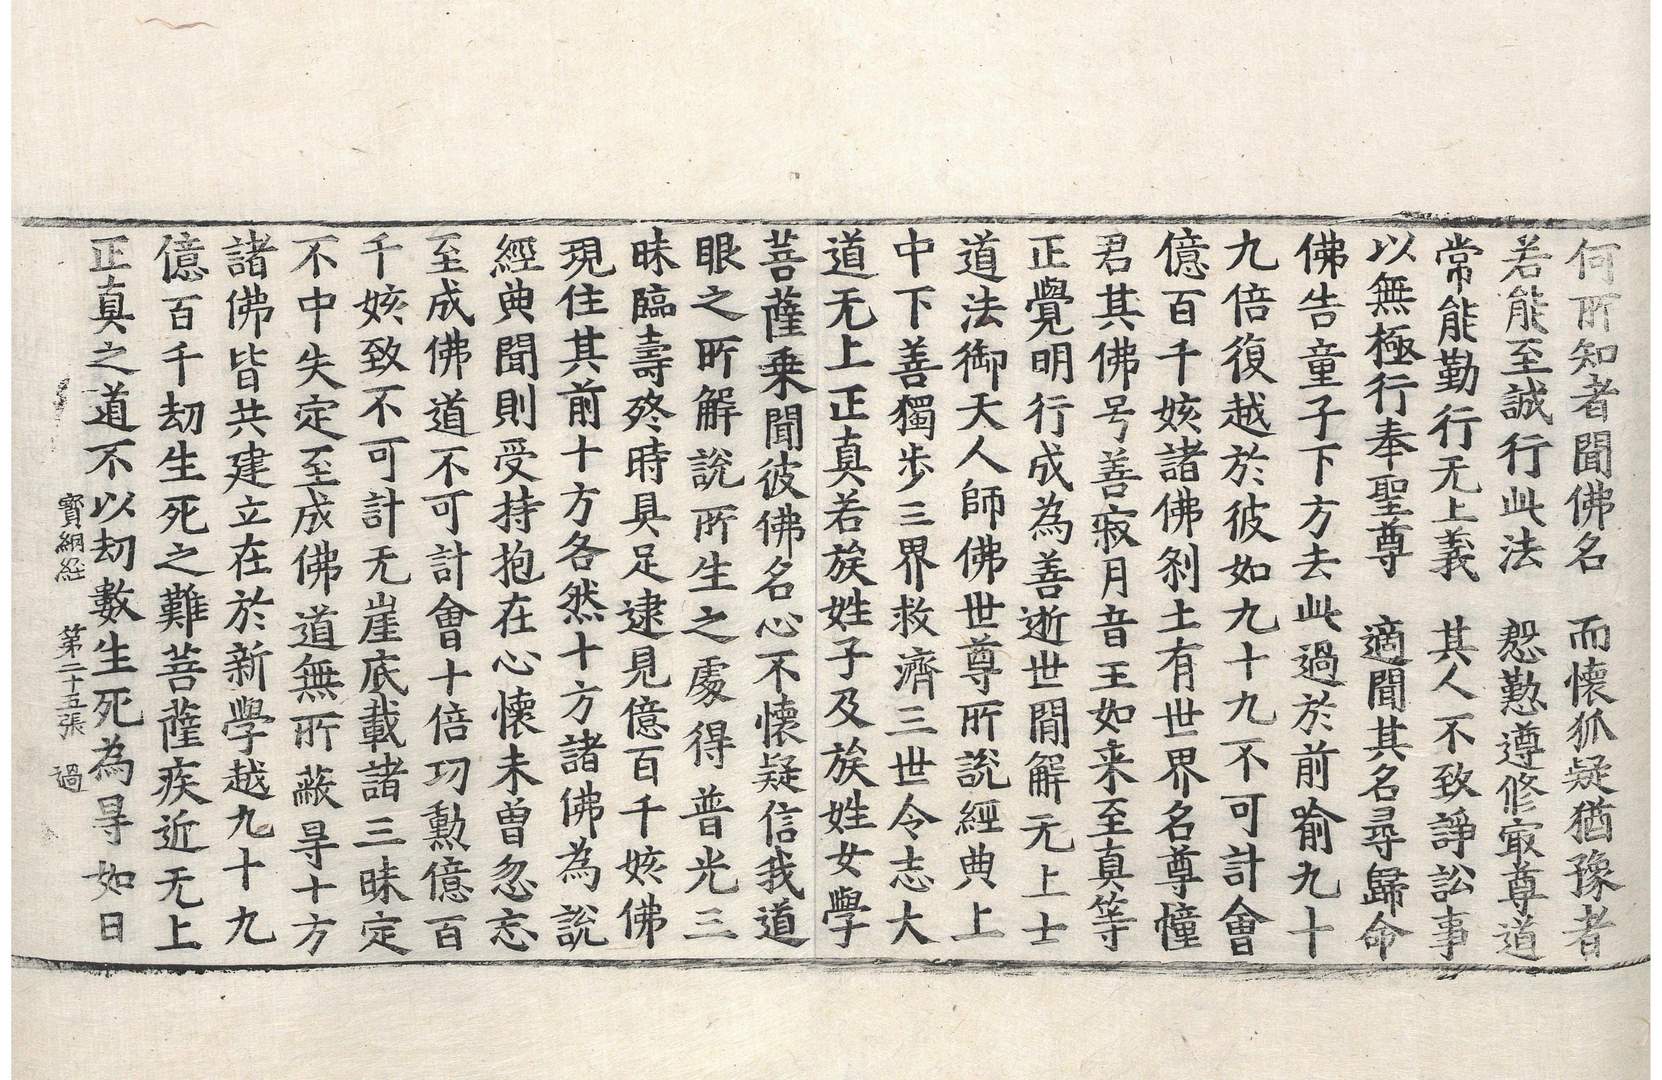 何所知者聞佛名　而懷狐疑猶豫者
若能至誠行此法　慇懃遵修㝡尊道
常能勤行无上義　其人不致諍訟事
以無極行奉聖尊　適聞其名尋歸命
佛告童子下方去此過於前喻九十
九倍復越於彼如九十九不可計會
億百千姟諸佛剎土有世界名尊幢
君其佛号善寂月音王如来至真等
正覺明行成為善逝世間解无上士
道法御天人師佛世尊所說經典上
中下善獨步三界救濟三世令志大
道无上正真若族姓子及族姓女學
菩薩乗聞彼佛名心不懷疑信我道
眼之所解說所生之處得普光三
昧臨壽終時具足逮見億百千姟佛
現住其前十方各然十方諸佛為說
經典聞則受持抱在心懷未曾忽忘
至成佛道不可計會十倍功勳億百
千姟致不可計无崖底載諸三昧定
不中失定至成佛道無所蔽㝵十方
諸佛皆共建立在於新學越九十九
億百千劫生死之難菩薩疾近无上
正真之道不以劫數生死為㝵如日
寳網經　第二十五張　過